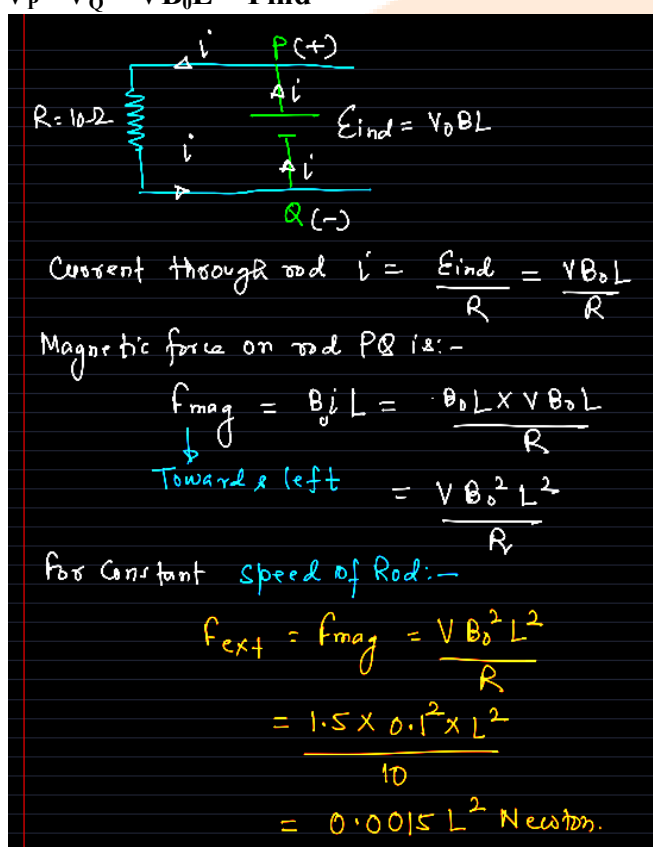 i P(+)
i
R = 10Ω
Eind = V₀BL
i
i
Q (-)
Current through rod i = Eind / R = VB₀L / R
Magnetic force on rod PQ is:-
Fmag = B₀iL = B₀L × VB₀L / R
Towards left
= VB₀²L² / R
For Constant speed of Rod:-
Fext = Fmag = VB₀²L² / R
= 1.5 × 0.1² × L² / 10
= 0.0015 L² Newton.